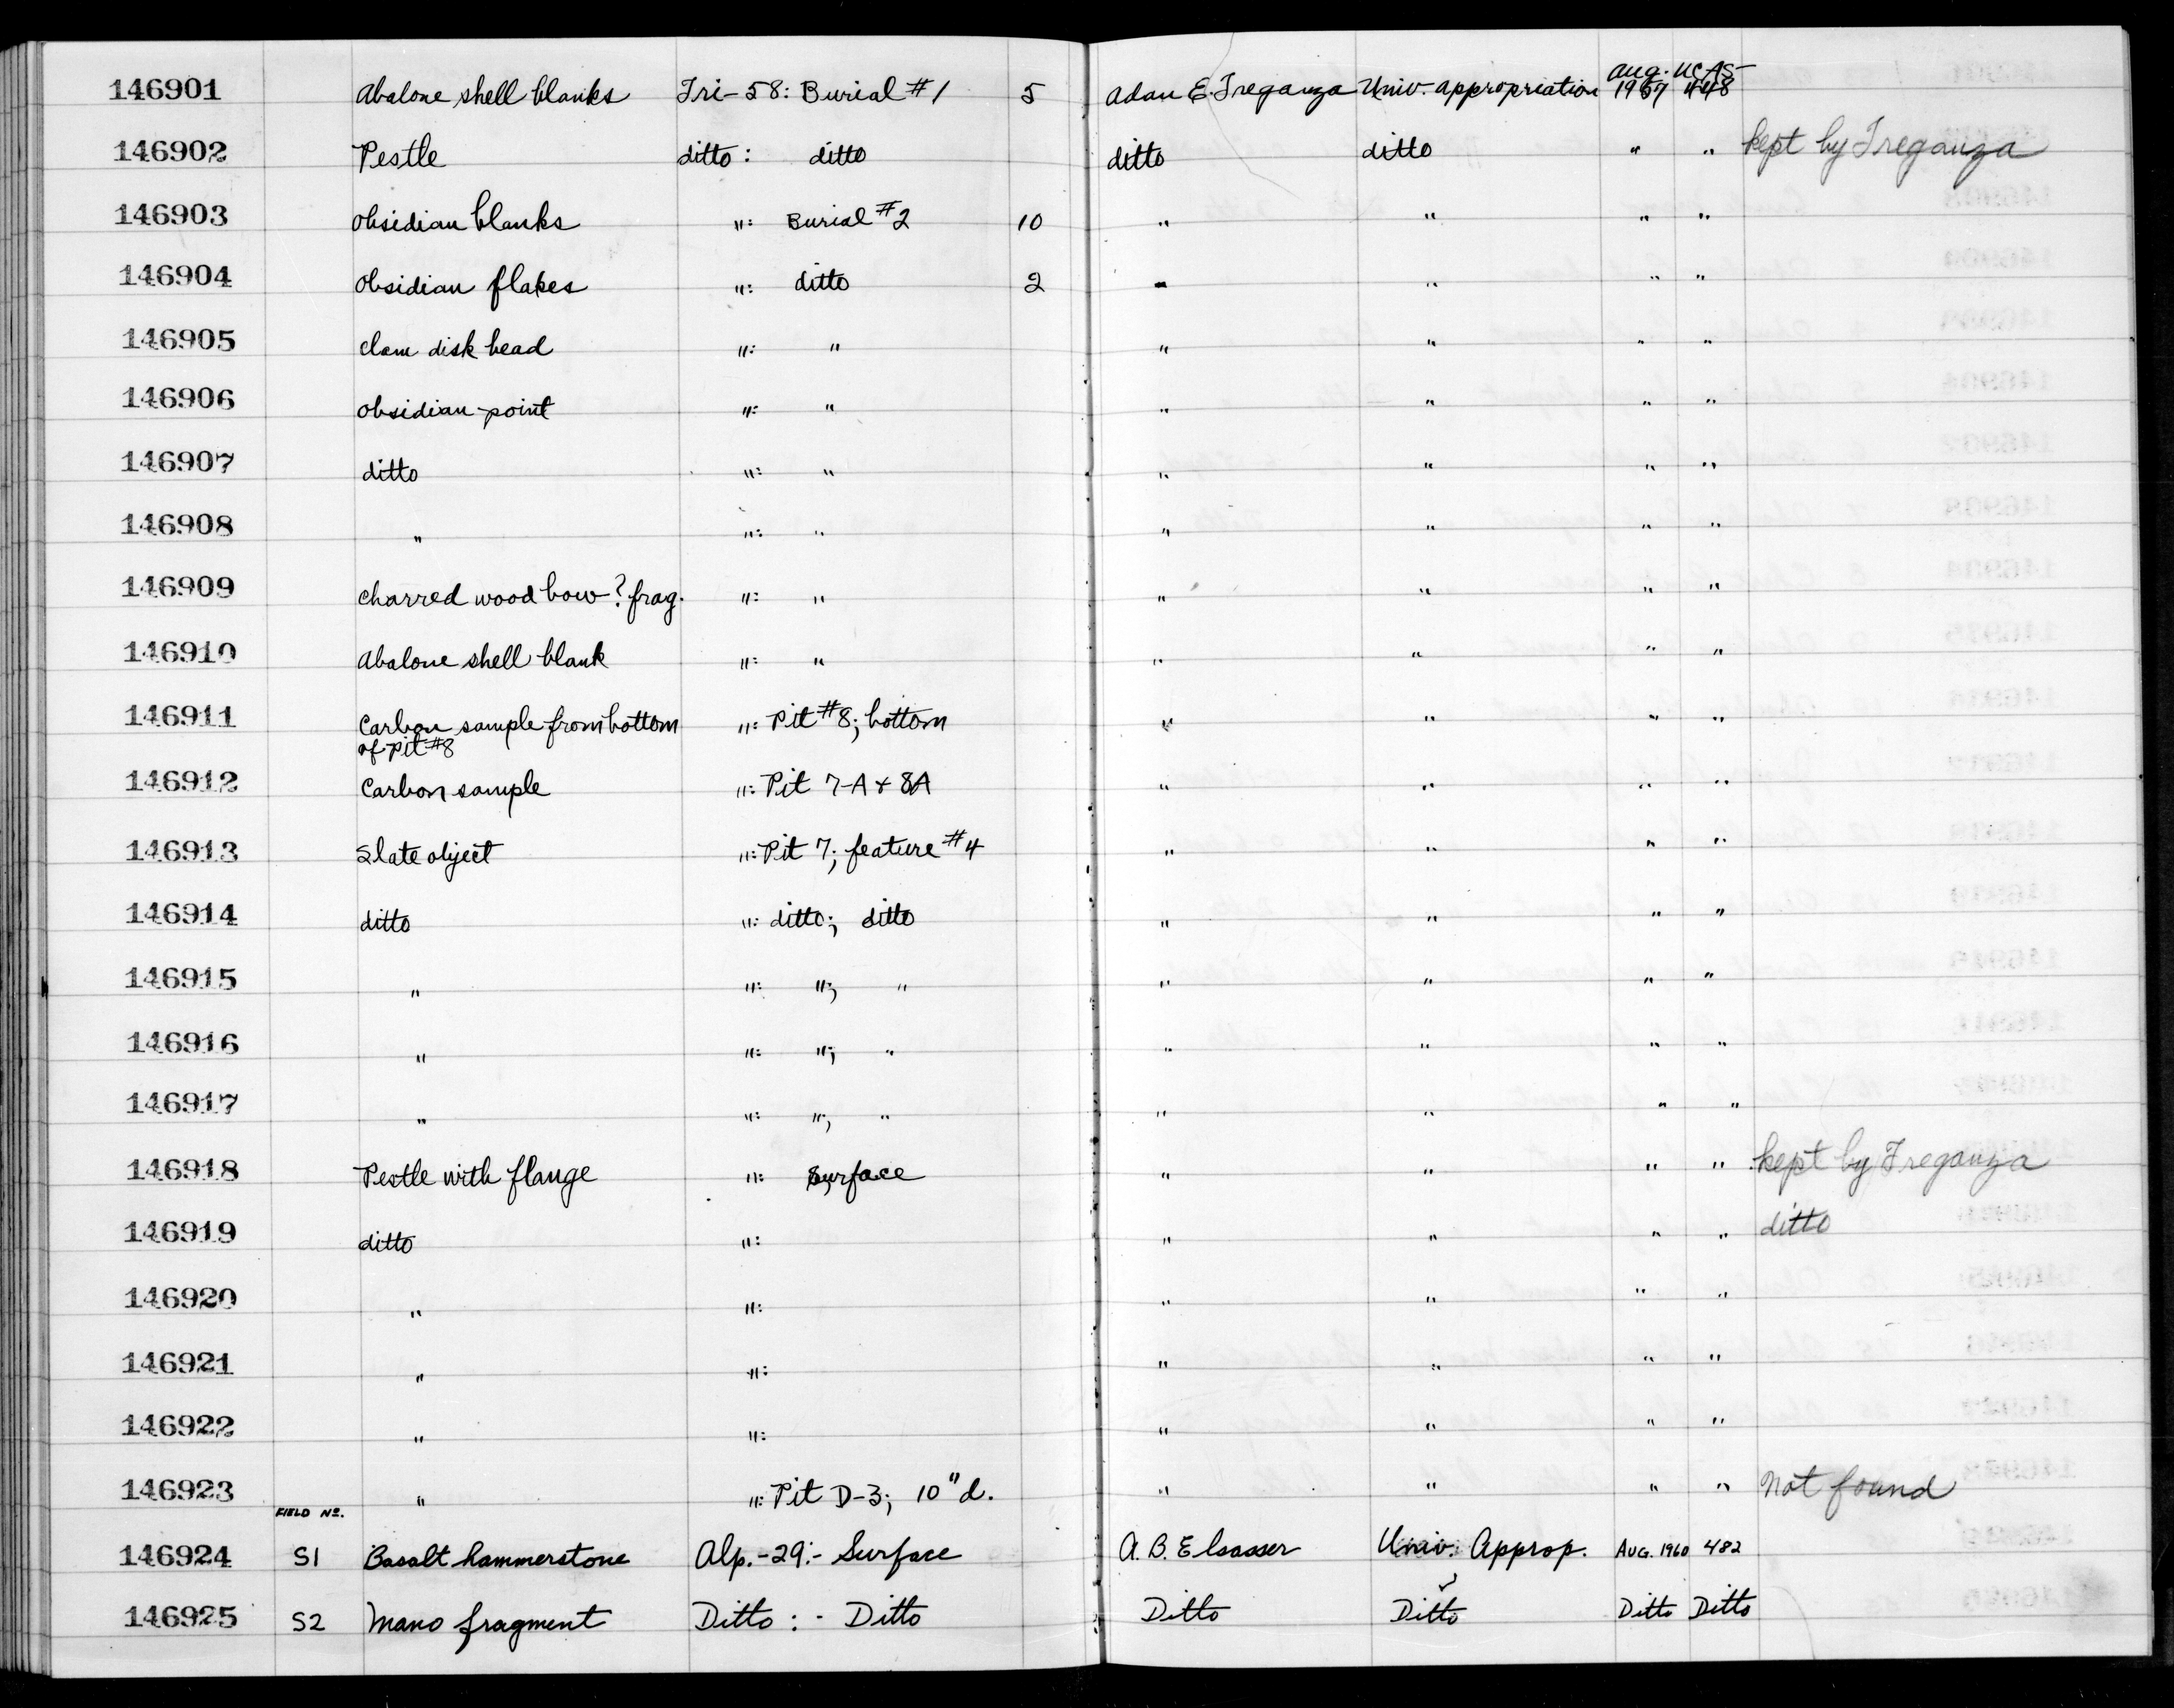 146901 Abalone shell blanks Tri-58: Burial #1 5 Adan E. Treganza Univ. appropriation Aug. 1957 UCAS-448
146902 Pestle ditto: ditto ditto ditto " " kept by Treganza
146903 Obsidian blanks ": Burial #2 10 " " " "
146904 Obsidian flakes ": ditto 2 " " " "
146905 Clam disk bead ": " " " " "
146906 Obsidian point ": " " " " "
146907 ditto ": " " " " "
146908 " ": " " " " "
146909 Charred wood bow? frag. ": " " " " "
146910 Abalone shell blank ": " " " " "
146911 Carbon sample from bottom ": Pit #8; bottom " " " "
of pit #8
146912 Carbon sample ": Pit 7-A + 8A " " " "
146913 Slate object ": Pit 7; feature #4 " " " "
146914 ditto ": ditto; ditto " " " "
146915 " ": "; " " " " "
146916 " ": "; " " " " "
146917 " ": "; " " " " "
146918 Pestle with flange ": Surface " " " " kept by Treganza
146919 ditto ": " " " " ditto
146920 " ": " " " "
146921 " ": " " " "
146922 " ": " " " "
146923 " ": Pit D-3; 10" d. " " " " Not found
FIELD No.
146924 S1 Basalt hammerstone Alp.-29:- Surface A. B. Elsasser Univ. Approp. AUG. 1960 482
146925 S2 Mano fragment Ditto : - Ditto Ditto Ditto Ditto Ditto